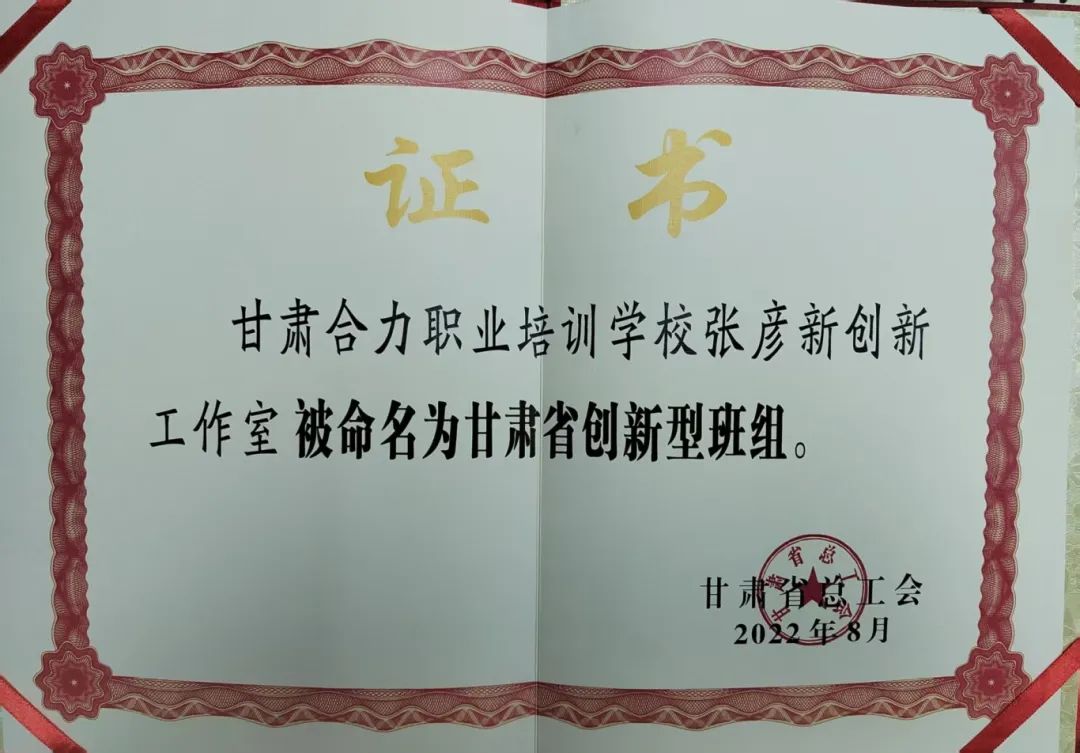 证书
甘肃合力职业培训学校张彦新创新
工作室被命名为甘肃省创新型班组。
甘肃省总工会
甘肃省总工会
2022年8月